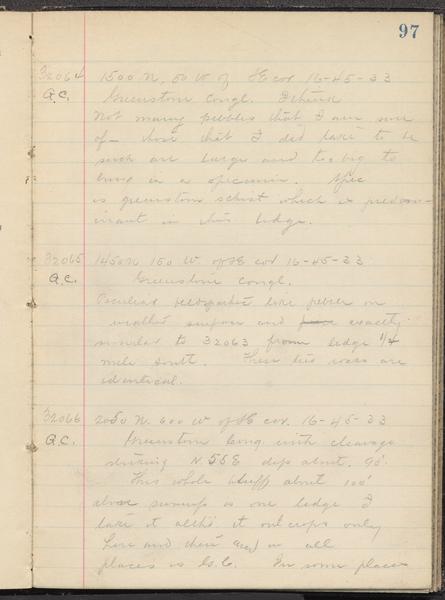 97
32064 1500 N. 50 W of SE cor 16-45-33
A.C. Greenstone Congl. I think
Not many pebbles that I am sure
of - those that I did take to be
such are large and too big to
bring in a specimen. Spec
is greenstone schist which is predom-
inant in this ledge.
32065 1450N 150 W. of SE cor 16-45-33
A.C. Greenstone Congl.
Peculiar like on
weathered surface and exactly
similar to 32063 from ledge 1/4
mile south. These two rocks are
identical.
32066 2050 N. 600 W of SE cor. 16-45-33
A.C. Greenstone Cong. with cleavage
striking N 55 E dips about 90°
This whole bluff about 100'
above swamp as one ledge I
take it altho it outcrops only
here and there and in all
places is G.C. In some places